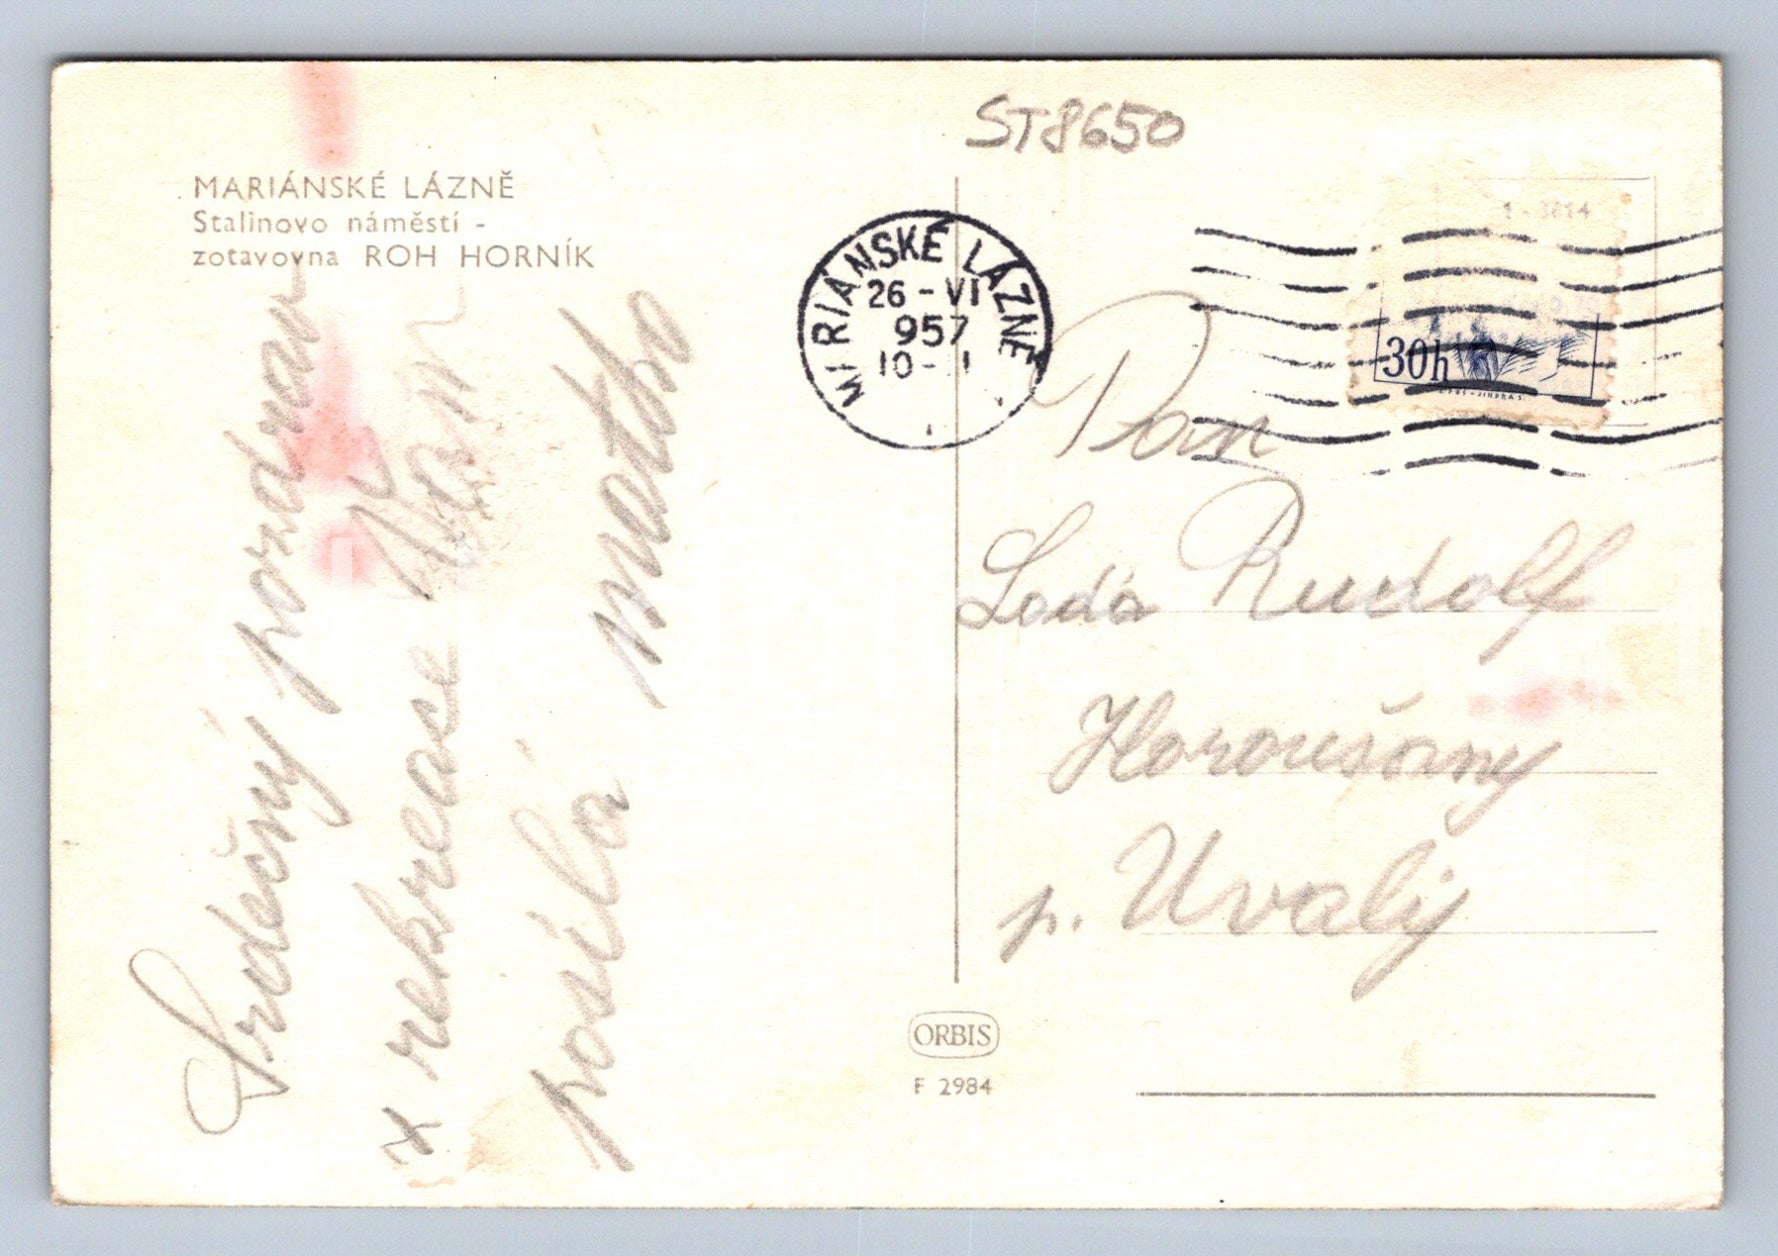 ST8650
MARIÁNSKÉ LÁZNĚ
Stalinovo náměstí -
zotavovna ROH HORNÍK
MARIÁNSKÉ LÁZNĚ
26 - VI
957
10 -
30h
Srdečný pozdrav
z rekrease Vám
posílá matka
Pan
Lada Rudolf
Horoušany
p. Uvaly
ORBIS
F 2984